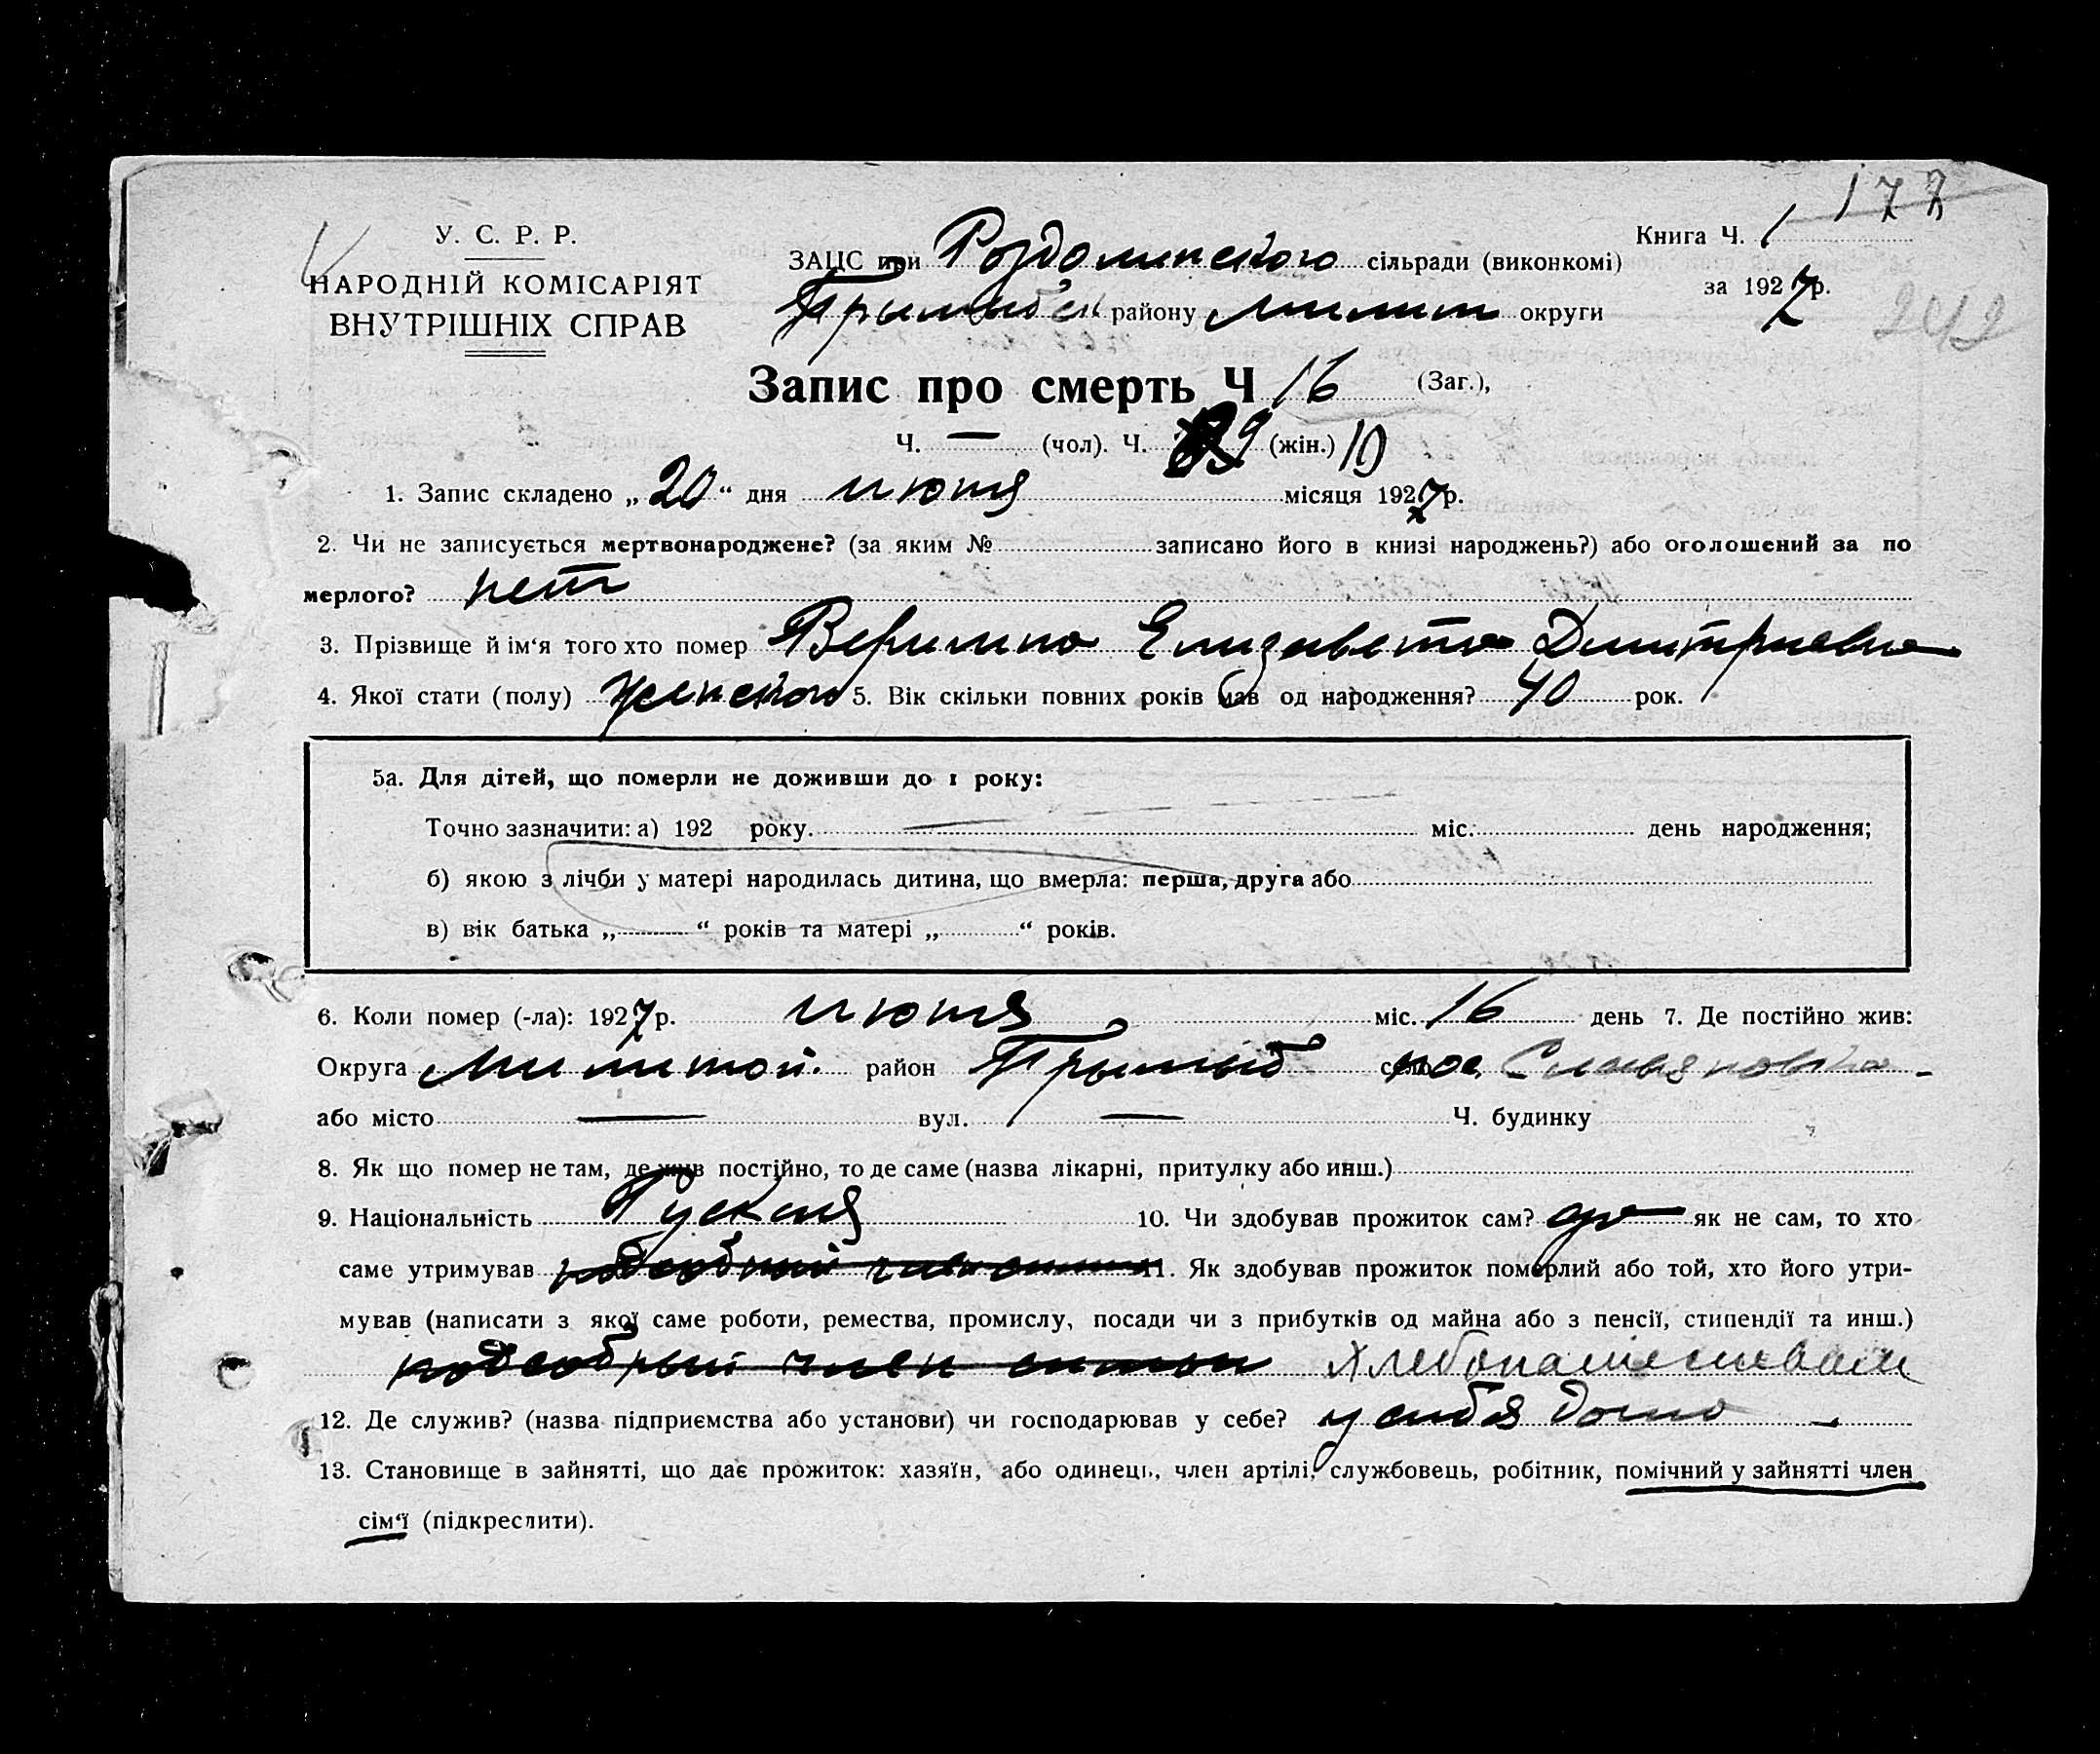 177
У. С. Р. Р.
НАРОДНІЙ КОМІСАРІЯТ
ВНУТРІШНІХ СПРАВ
ЗАЦС при Роздолинского сільради (виконкомі)
району округи
Книга Ч. 1
за 1927 р.
242
Запис про смерть Ч 16 (Заг.),
Ч. — (чол). Ч. 9 (жін.) 10
1. Запис складено „20“ дня июля місяця 1927 р.
2. Чи не записується мертвонароджене? (за яким № записано його в книзі народжень?) або оголошений за по
мерлого? нет
3. Прізвище й ім‘я того хто помер Елизавета Дмитриевна
4. Якої стати (полу) женского 5. Вік скільки повних років мав од народження? 40 рок.
5а. Для дітей, що померли не доживши до 1 року:
Точно зазначити: а) 192 року. — міс. день народження;
б) якою з лічби у матері народилась дитина, що вмерла: перша, друга або
в) вік батька „ “ років та матері „ “ років.
6. Коли помер (-ла): 1927 р. июля міс. 16 день 7. Де постійно жив:
Округа район село пос. Славяновка -
або місто — вул. — Ч. будинку
8. Як що помер не там, де жив постійно, то де саме (назва лікарні, притулку або инш.)
9. Національність Руская 10. Чи здобував прожиток сам? як не сам, то хто
саме утримував 11. Як здобував прожиток померлий або той, хто його утри-
мував (написати з якої саме роботи, ремества, промислу, посади чи з прибутків од майна або з пенсії, стипендії та инш.)
подсобный член семьи хлебопашеством
12. Де служив? (назва підприємства або установи) чи господарював у себе? у себя дома -
13. Становище в зайнятті, що дає прожиток: хазяїн, або одинець, член артілі, службовець, робітник, помічний у зайнятті член
сім‘ї (підкреслити).